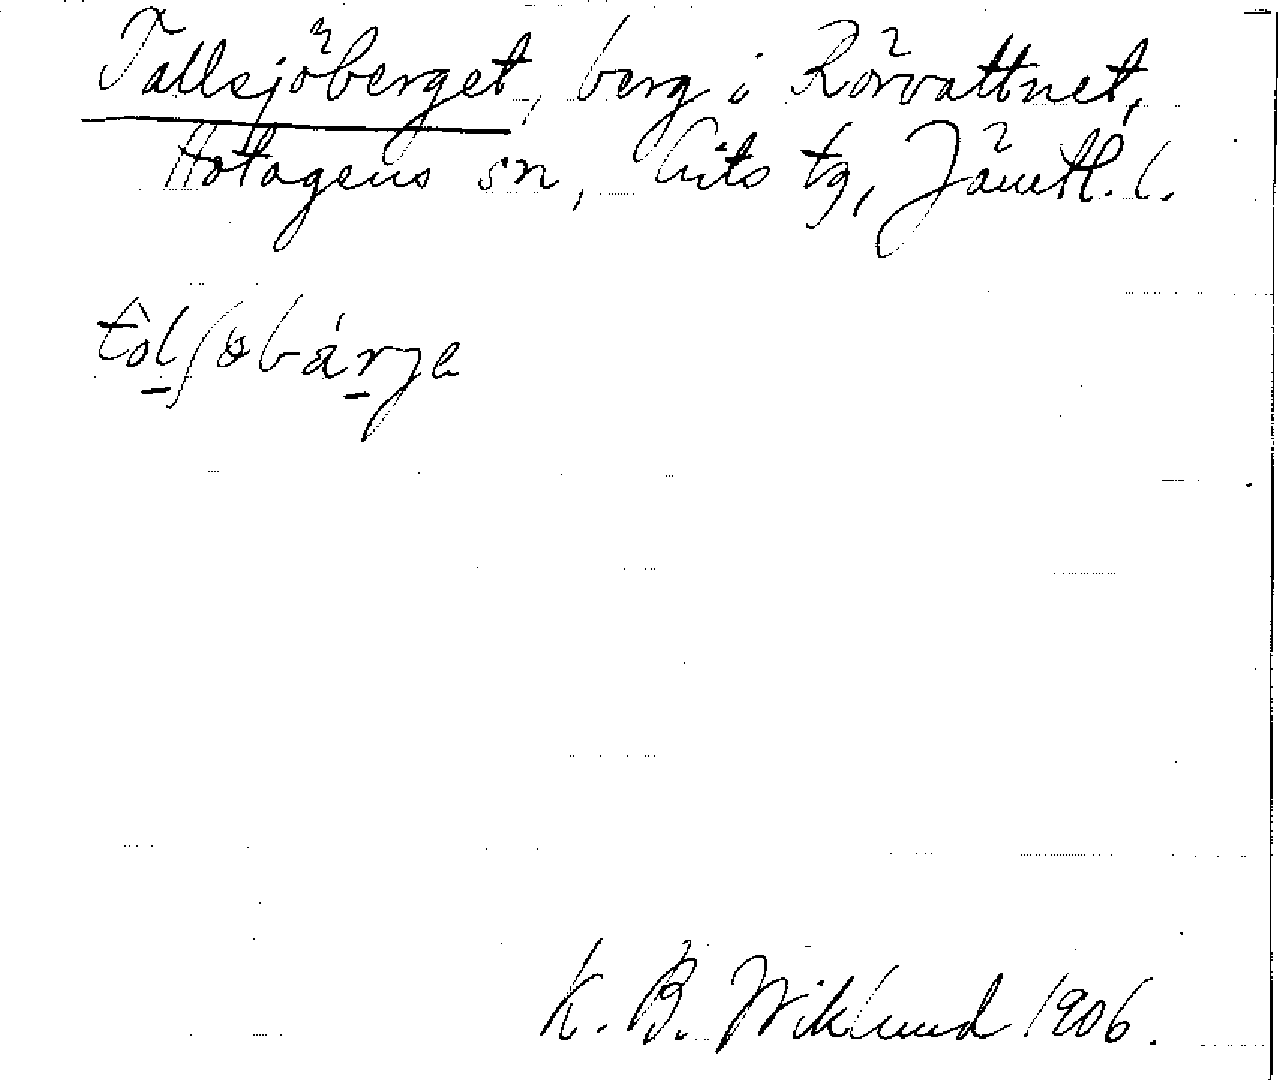 Tallsjöberget, berg i Rörvattnet,
Hotagens sn, Lits tg, Jämtl. l.
tôlʃøbárje
K. B. Wiklund 1906.